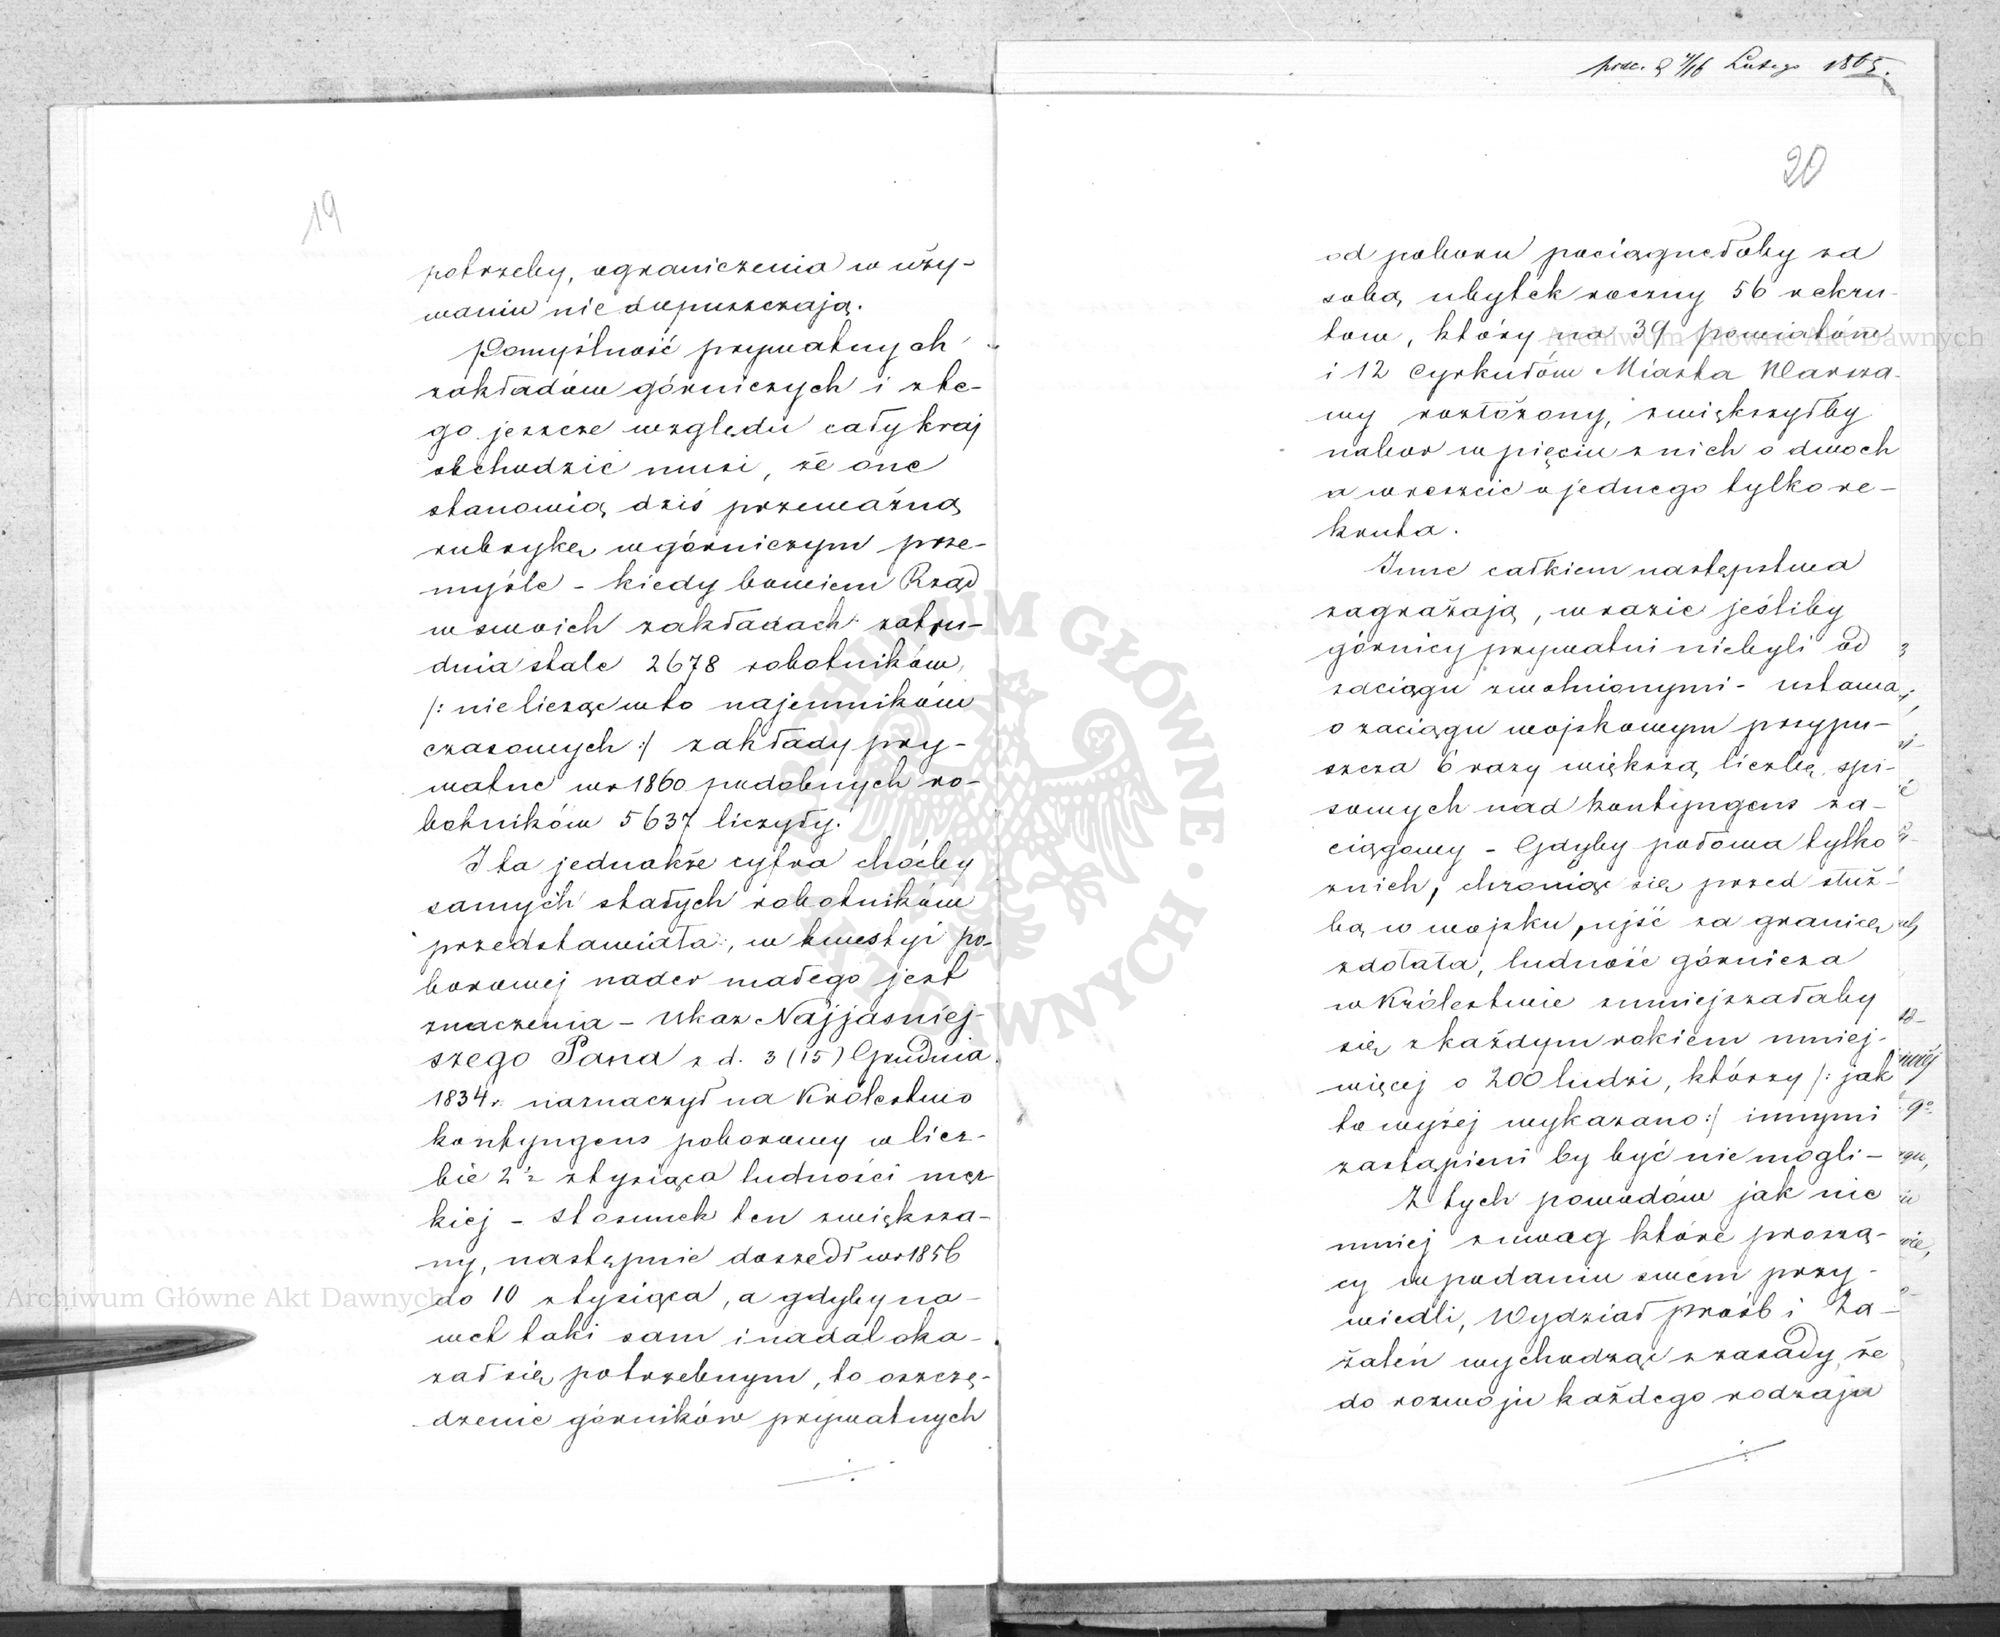 19
potrzeby, ograniczenia w uży-
waniu nie dopuszczają.
Pomyślność prywatnych
zakładów górniczych i zte-
go jeszcze względu cały kraj
obchodzić musi, że one
stanowią dziś przeważną
rubrykę w górniczym prze-
myśle - kiedy bowiem Rząd
w swoich zakładach zatru-
dnia stale 2678 robotników,
/: nie licząc w to najemników
czasowych :/ zakłady pry-
watne w r 1860 podobnych ro-
botników 5637 liczyły.
I ta jednakże cyfra choćby
samych stałych robotników
przedstawiała, w kwestyi po-
borowej nader małego jest
znaczenia - Ukaz Najjaśniej-
szego Pana z d. 3 (15) Grudnia
1834 r. naznaczył na Królestwo
kontyngens poborowy w licz-
bie 2½ z tysiąca ludności męz-
kiej - stosunek ten zwiększa-
ny, następnie doszedł w r 1856
do 10 z tysiąca, a gdyby na-
wet taki sam i nadal oka-
zał się potrzebnym, to oszczę-
dzenie górników prywatnych
Lutego 1865.
20
od poboru pociągnęłoby za
sobą ubytek roczny 56 rekru-
tow, który na 39 powiatów
i 12 Cyrkułów Miasta Warsza-
wy rozłożony, zwiększyłby
nabor w pięciu z nich o dwoch
a wreszcie o jednego tylko re-
kruta.
Inne całkiem następstwa
zagrażają, w razie jeśliby
górnicy prywatni niebyli od
zaciągu zwolnionymi - ustawa
o zaciągu wojskowym przypu-
szcza 6 razy większą liczbę spi-
sowych nad kontyngens za-
ciągowy - Gdyby połowa tylko
z nich, chroniąc się przed służ-
bą w wojsku, ujść za granicę
zdołała, ludność górnicza
w Królestwie zmniejszałaby
się z każdym rokiem mniej-
więcej o 200 ludzi, którzy /: jak
to wyżej wykazano :/ innymi
zastąpieni by być nie mogli -
Z tych powodów jak nie
mniej z uwag które proszą-
cy w podaniu swem przy-
wiedli, Wydział próśb i Za-
żaleń wychodząc z zasady, że
do rozwoju każdego rodzaju
Archiwum Główne Akt Dawnych
Archiwum Główne Akt Dawnych
ARCHIWUM GŁÓWNE · AKT DAWNYCH ·